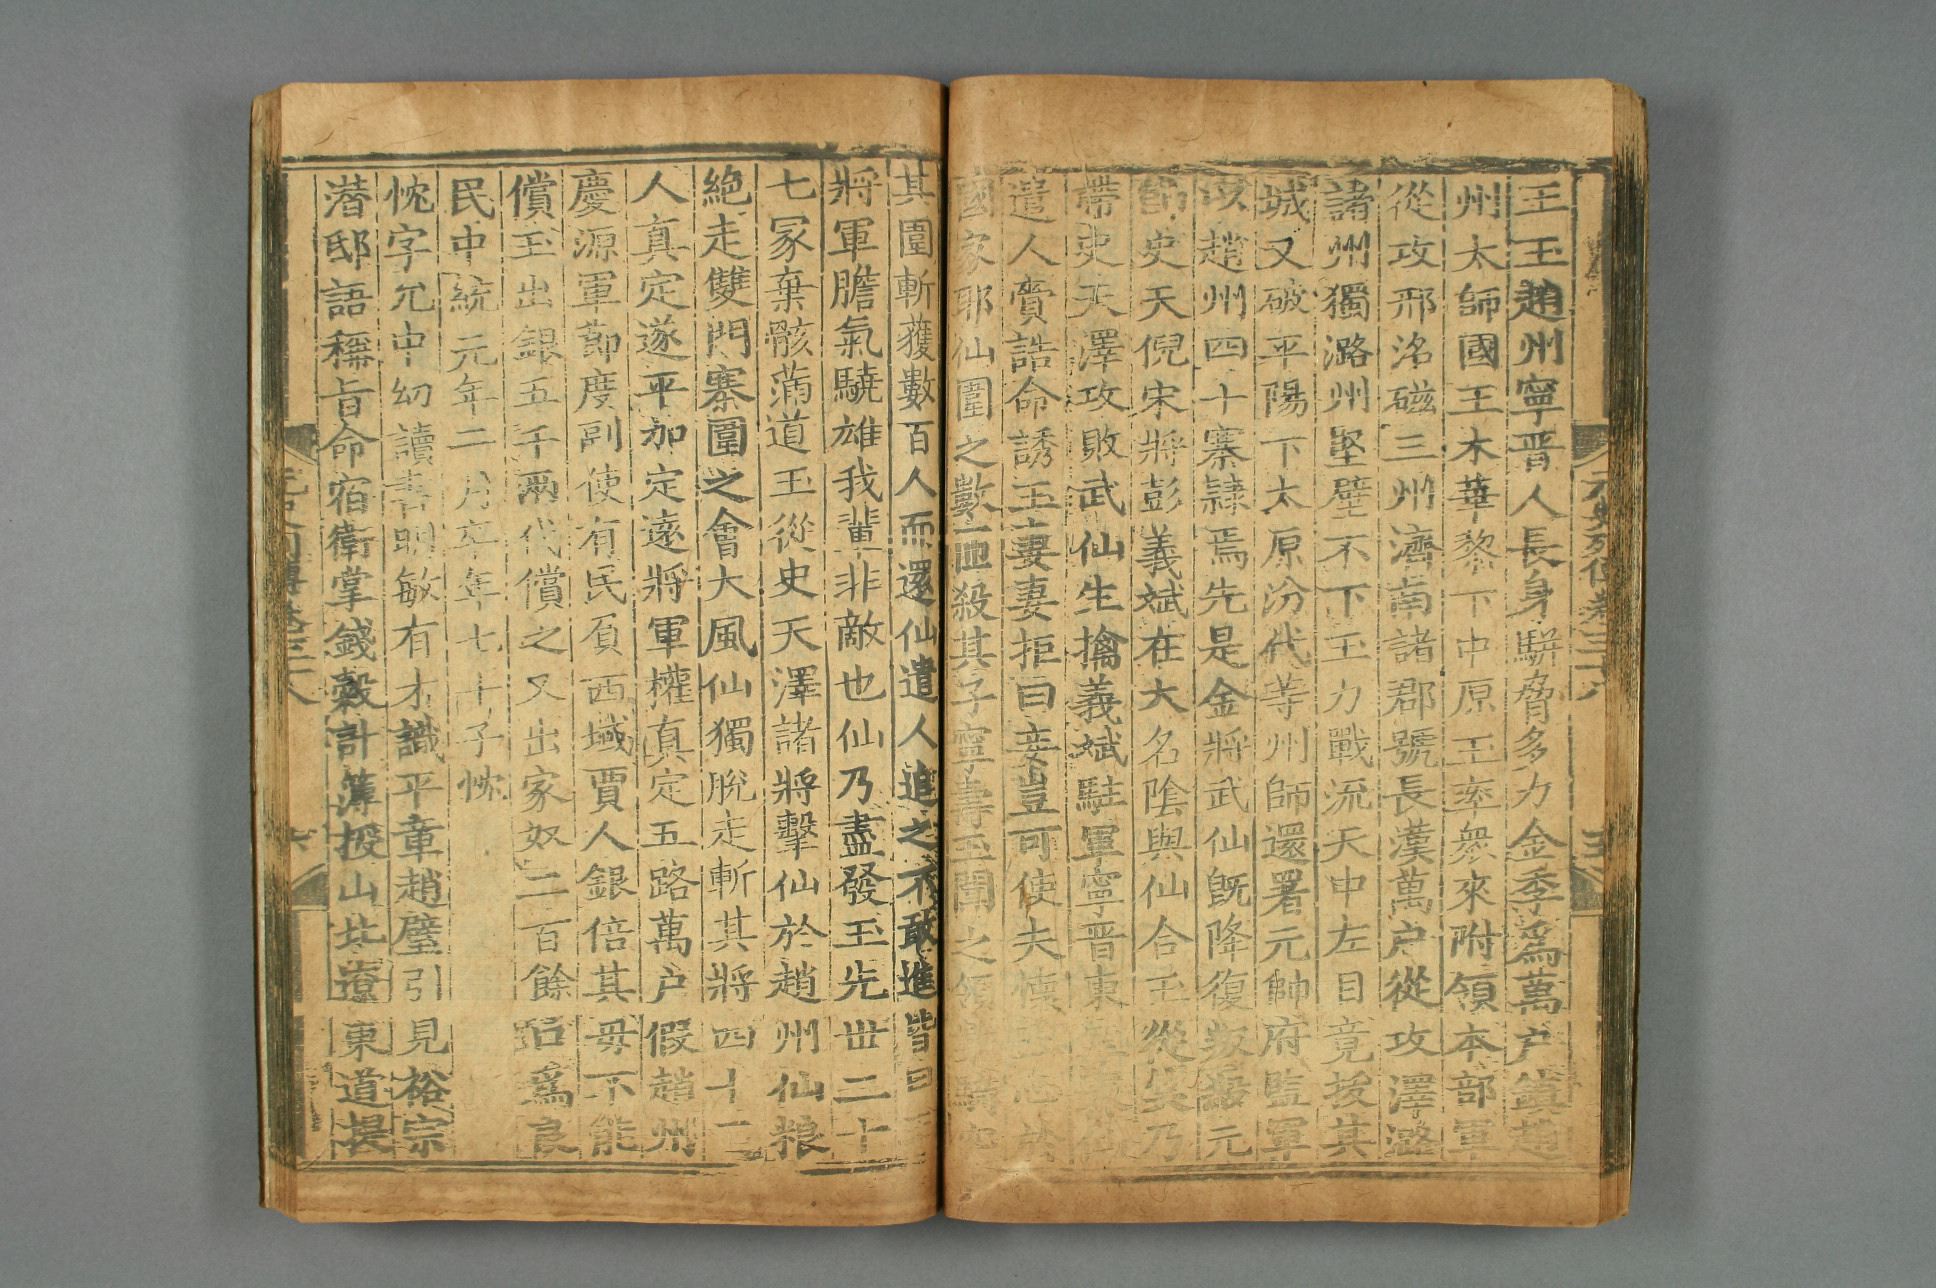 王玉趙州寧晉人長身駢脅多力金季為萬户鎮趙
州太師國王木華黎下中原玉率衆來附領本部軍
從攻邢洺磁三州濟南諸郡號長漢萬户從攻澤潞
諸州獨潞州堅壁不下玉力戰流矢中左目竟拔其
城又破平陽下太原汾代等州師還署元帥府監軍
趙州四十寨隷焉先是金將武仙既降復叛殺元
史天倪宋將彭義斌在大名陰與仙合玉從笑乃
帶史天澤攻敗武仙生擒義斌駐軍寧晉東
遣人齎誥命誘玉妻妻拒曰妾豈可使夫懷二心於
國家耶仙圍之數匝殺其子寧壽玉聞之領
其圍斬獲數百人而還仙遣人追之不敢進皆曰王
將軍膽氣驍雄我輩非敵也仙乃盡發玉先世二十
七冢棄骸滿道玉從史天澤諸將擊仙於趙州仙糧
絶走雙門寨圍之會大風仙獨脫走斬其將四十二
人真定遂平加定遠將軍權真定五路萬户假趙州
慶源軍節度副使有民負西域賈人銀倍其母不能
償玉出銀五千兩代償之又出家奴二百餘口爲良
民中統元年二月卒年七十子忱
忱字允中幼讀書明敏有才識平章趙璧引見裕宗
潛邸語稱旨命宿衛掌錢穀計簿授山北遼東道提
元史列傳卷三十八